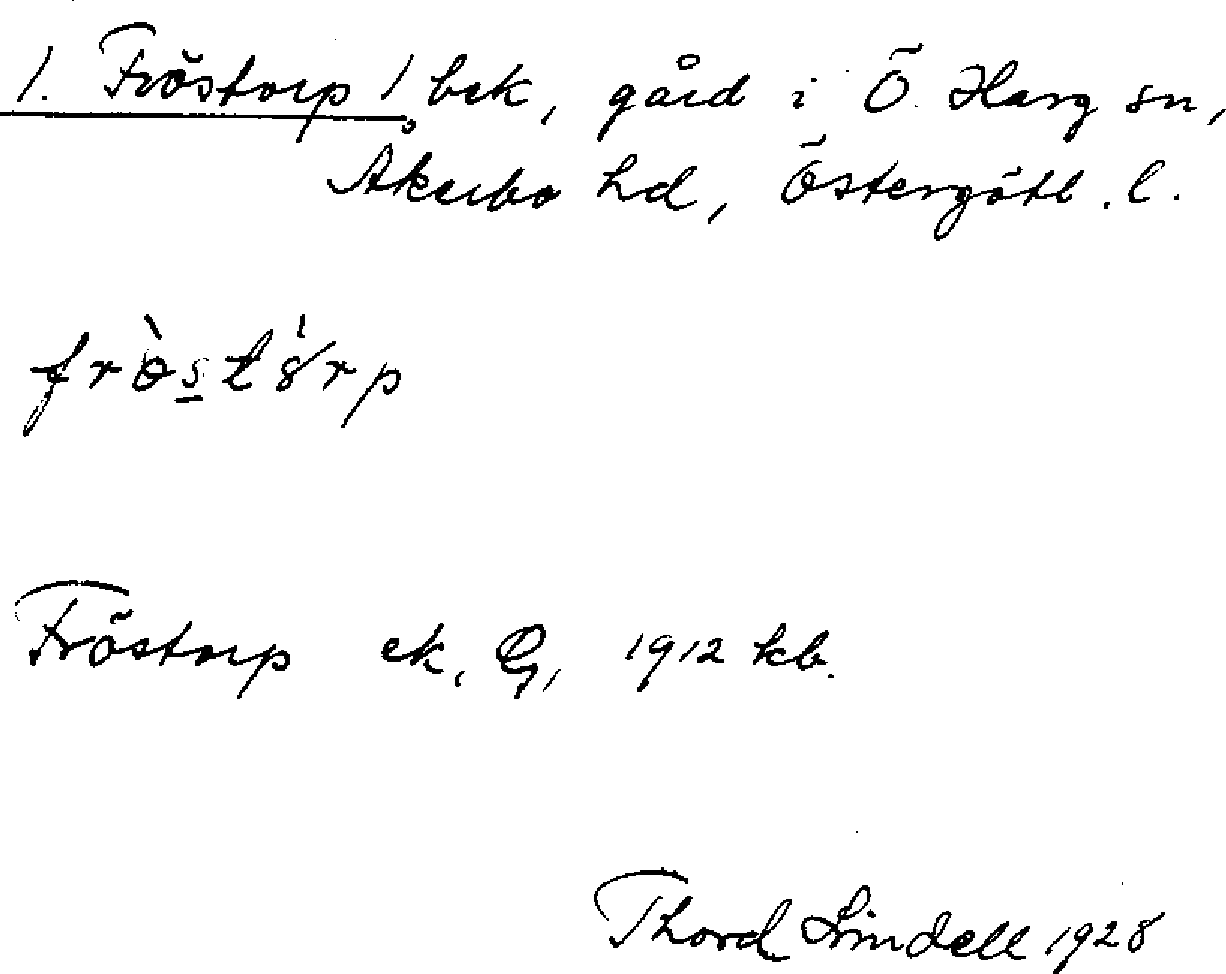 1. Fröstorp 1 bek, gård i Ö. Harg sn,
Åkerbo hd, Östergötl. l.
Fröstorp ek, G, 1912 kb.
Thord Lindell 1928